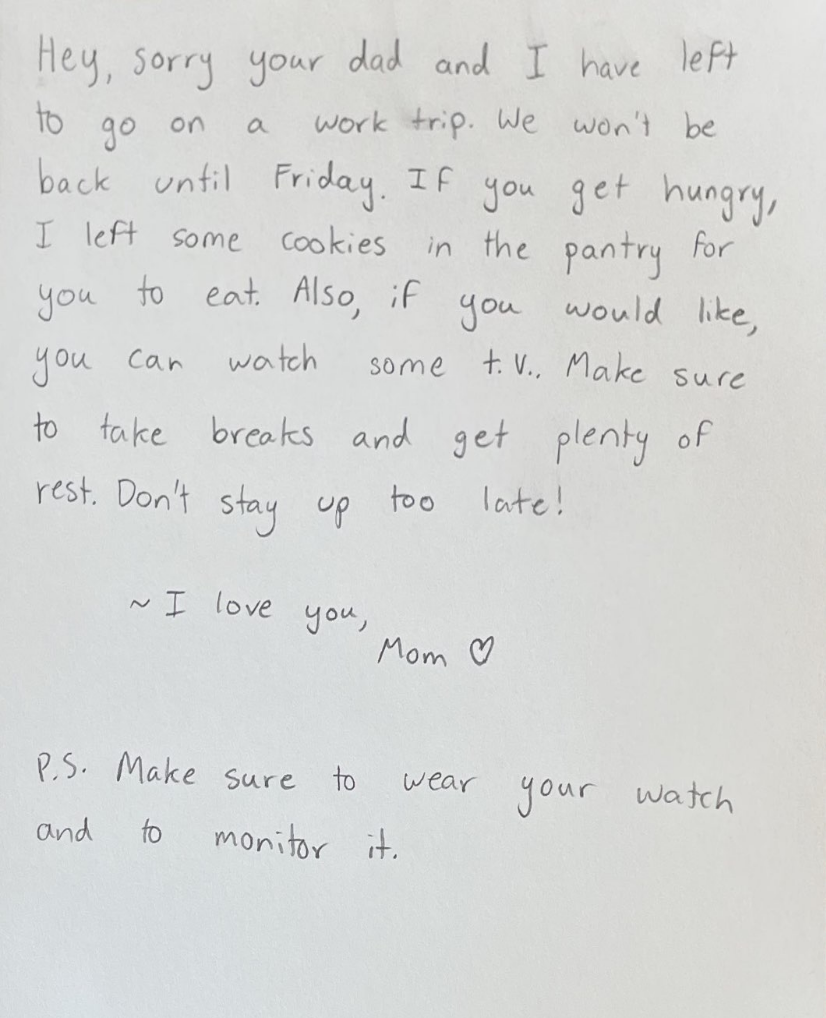 Hey, sorry your dad and I have left
to go on a work trip. We won't be
back until Friday. If you get hungry,
I left some cookies in the pantry for
you to eat. Also, if you would like,
you can watch some t.v.. Make sure
to take breaks and get plenty of
rest. Don't stay up too late!
~ I love you,
Mom ♡
P.S. Make sure to wear your watch
and to monitor it.